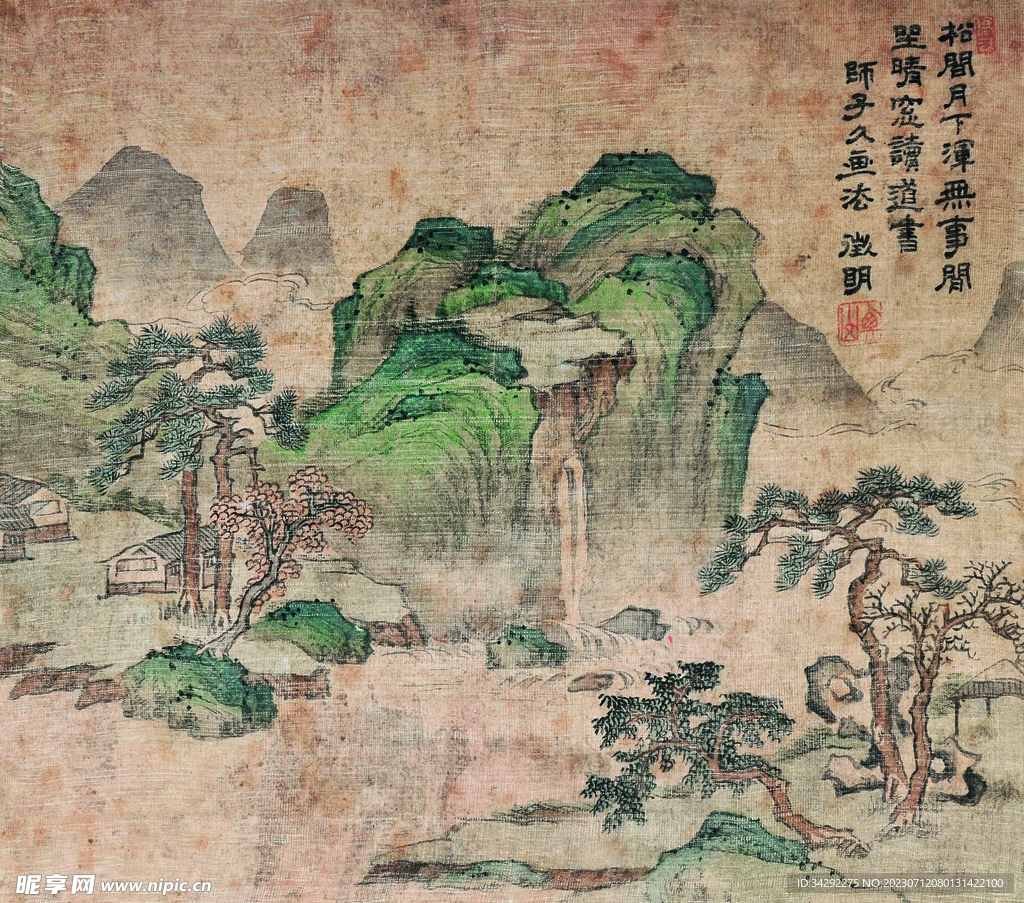 松間月下渾無事閒
坐晴窓讀道書
師子久画法 徵明
昵享网 www.nipic.cn
ID:34292275 NO:20230712080131422100